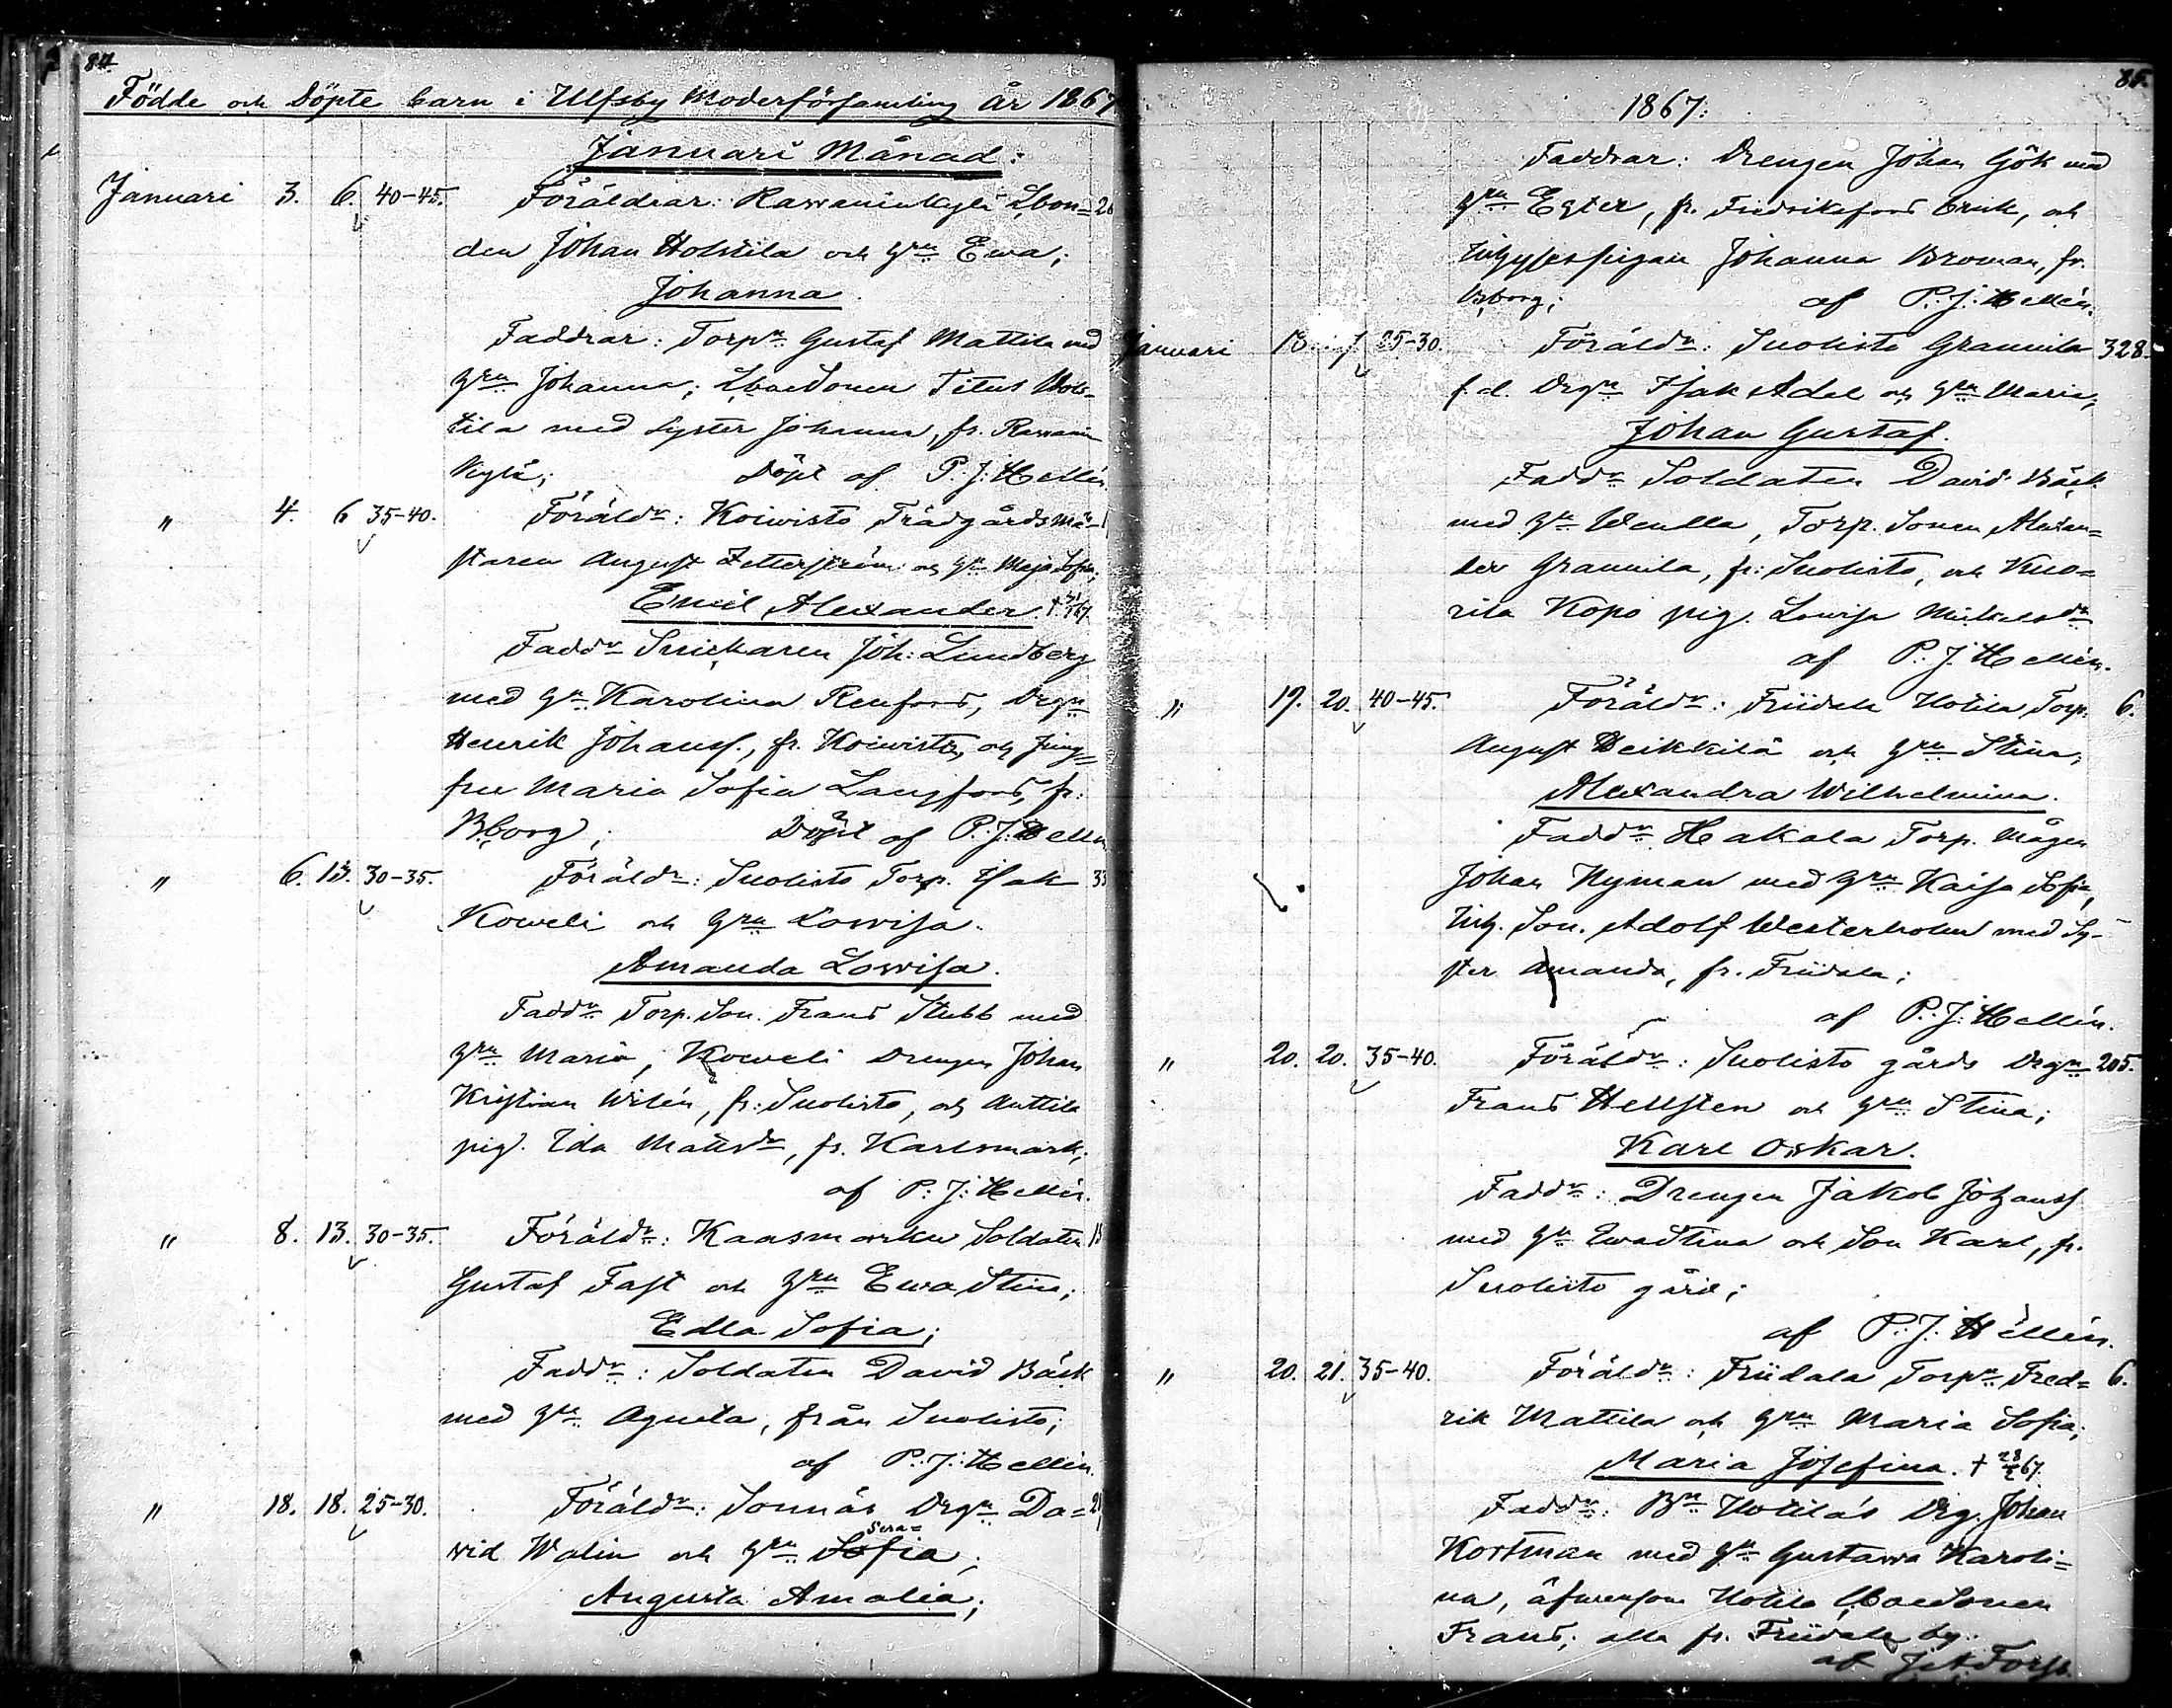 84.
Födde och Döpte barn i Ulfsby Moderförsamling År 1867
Januari Månad:
Januari 3. 6. 40-45. Föräldrar: Rawaninkylä Lbon= 26
den Johan Holttila och Hru Ewa;
Johanna.
Faddrar: Torpn Gustaf Mattila med
Hru Johanna; Lbondsonen Titus Hol-
tila med syster Johanna, fr. Rawanin
kylä; Döpt af P. J. Hellén.
" 4. 6 35-40. Föräldr: Koiwisto Trädgårdsmä-
staren August Zetterström och Hu Maja Sofia;
Emil Alexander. †
Faddr Snickaren Joh: Lundberg
med Hu Karolina Renfors, Drgn
Henrik Johansf., fr. Koiwisto, och Jung=
fru Maria Sofia Langfors, fr:
Bborg; Döpt af P. J. Hellén
" 6. 13. 30-35. Föräldr: Suolisto Torp. Isak 33
Koweli och Hru Lowisa.
Amanda Lowisa.
Faddr Torp. Son. Frans Stubb med
Hru Maria, Koweli Drengen Johan
Kristian Wilén, fr: Suolisto, och Anttila
pig. Ida Mattsdr, fr. Karlsmark;
af P. J. Hellén.
" 8. 13. 30-35. Föräldr: Kaasmarkku Soldaten
Gustaf Fast och Hru Ewa Stina;
Edla Sofia;
Faddr: Soldaten David Bäck
med Hu Agneta, från Suolisto;
af P. J. Hellén.
" 18. 18. 25-30. Föräldr: Sonnäs Drgn Da=
Sera=
vid Walin och Hru Sofia;
Augusta Amalia;
85.
1867:
Faddrar: Drengen Johan Gök med
Hru Ester, fr. Fredriksfors bruk, och
Inhysespigan Johanna Broman, fr.
Bborg; af P. J. Hellén.
Januari 18. 25-30. Föräldr: Suolisto Grannila 328.
f.d. Drgn Isak Adel och Hru Maria;
Johan Gustaf.
Faddr Soldaten David Bäck
med Hu Ulla, Torp. Sonen Alexan=
der Grannila, fr: Suolisto, och Kuo=
rila Kopo pig. Lowisa Mickelsdr
af P. J. Hellén.
" 19. 20. 40-45. Föräldr: Friidala Uotila Torp: 6.
August Heikkilä och Hru Stina;
Alexandra Wilhelmina.
Faddr Hakala Torp. Mågen
Johan Nyman med Hru Kaisa Sofia,
Inh. Son. Adolf Westerholm med Sy-
ster Amanda, fr. Friidala;
af P. J. Hellén.
" 20. 20. 35-40. Föräldr: Suolisto gårds Drgn 205.
Frans Hellsten och Hru Stina;
Karl Oskar.
Faddr: Drengen Jakob Johansf
med Hu Ewa Stina och Son Karl, fr.
Suolisto gård;
af P. J. Hellén.
" 20. 21. 35-40. Föräldr: Friidala Torpn Fred= 6.
rik Mattila och Hru Maria Sofia;
Maria Josefina. † 67.
Faddr: Bn Uotila's Drg. Johan
Kortman med Hu Gustawa Karoli=
na, äfwensom Uotila Lbondsonen
Frans; alla fr. Friidala by.
af